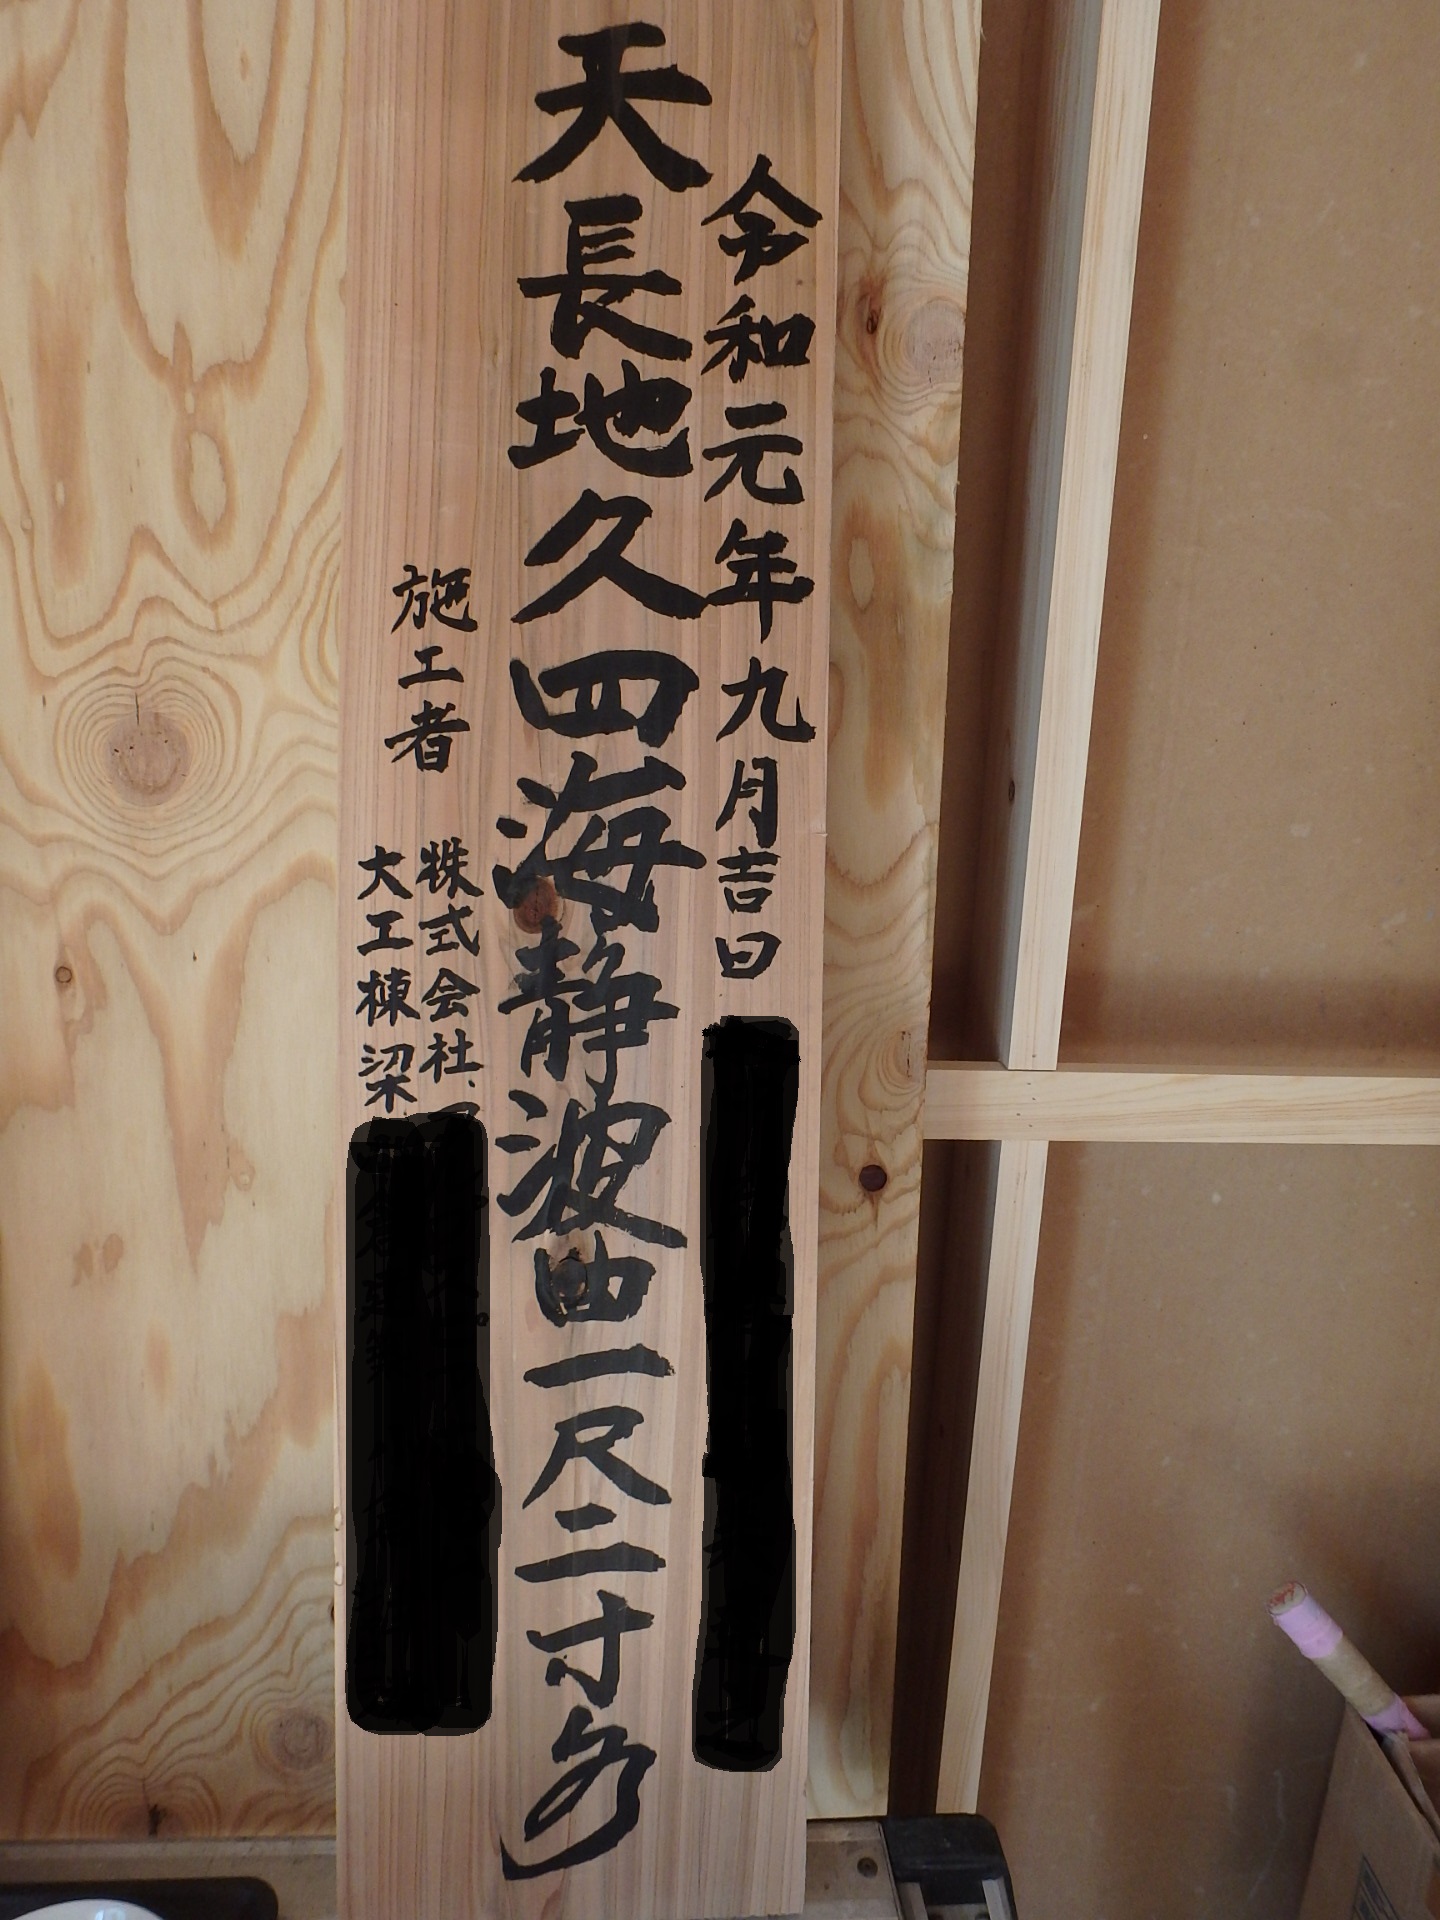 令和元年九月吉日
天長地久四海静波曲一尺二寸
施工者
株式会社
大工棟梁